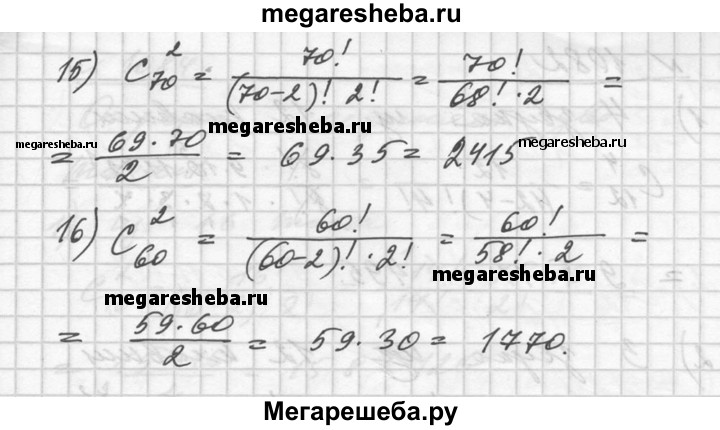 megaresheba.ru
15) C₇₀² = 70! / (70-2)! 2! = 70! / 68! · 2 =
megaresheba.ru
= 69·70 / 2 = 69·35 = 2415
megaresheba.ru
megaresheba.ru
16) C₆₀² = 60! / (60-2)! · 2! = 60! / 58! · 2 =
megaresheba.ru
megaresheba.ru
= 59·60 / 2 = 59·30 = 1770.
Мегарешеба.ру